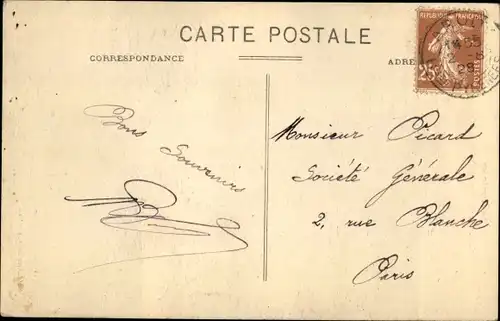 CARTE POSTALE
CORRESPONDANCE
REPUBLIQUE FRANÇAISE
25c
Bons
Souvenirs
Monsieur Picard
Société Générale
2, rue Blanche
Paris